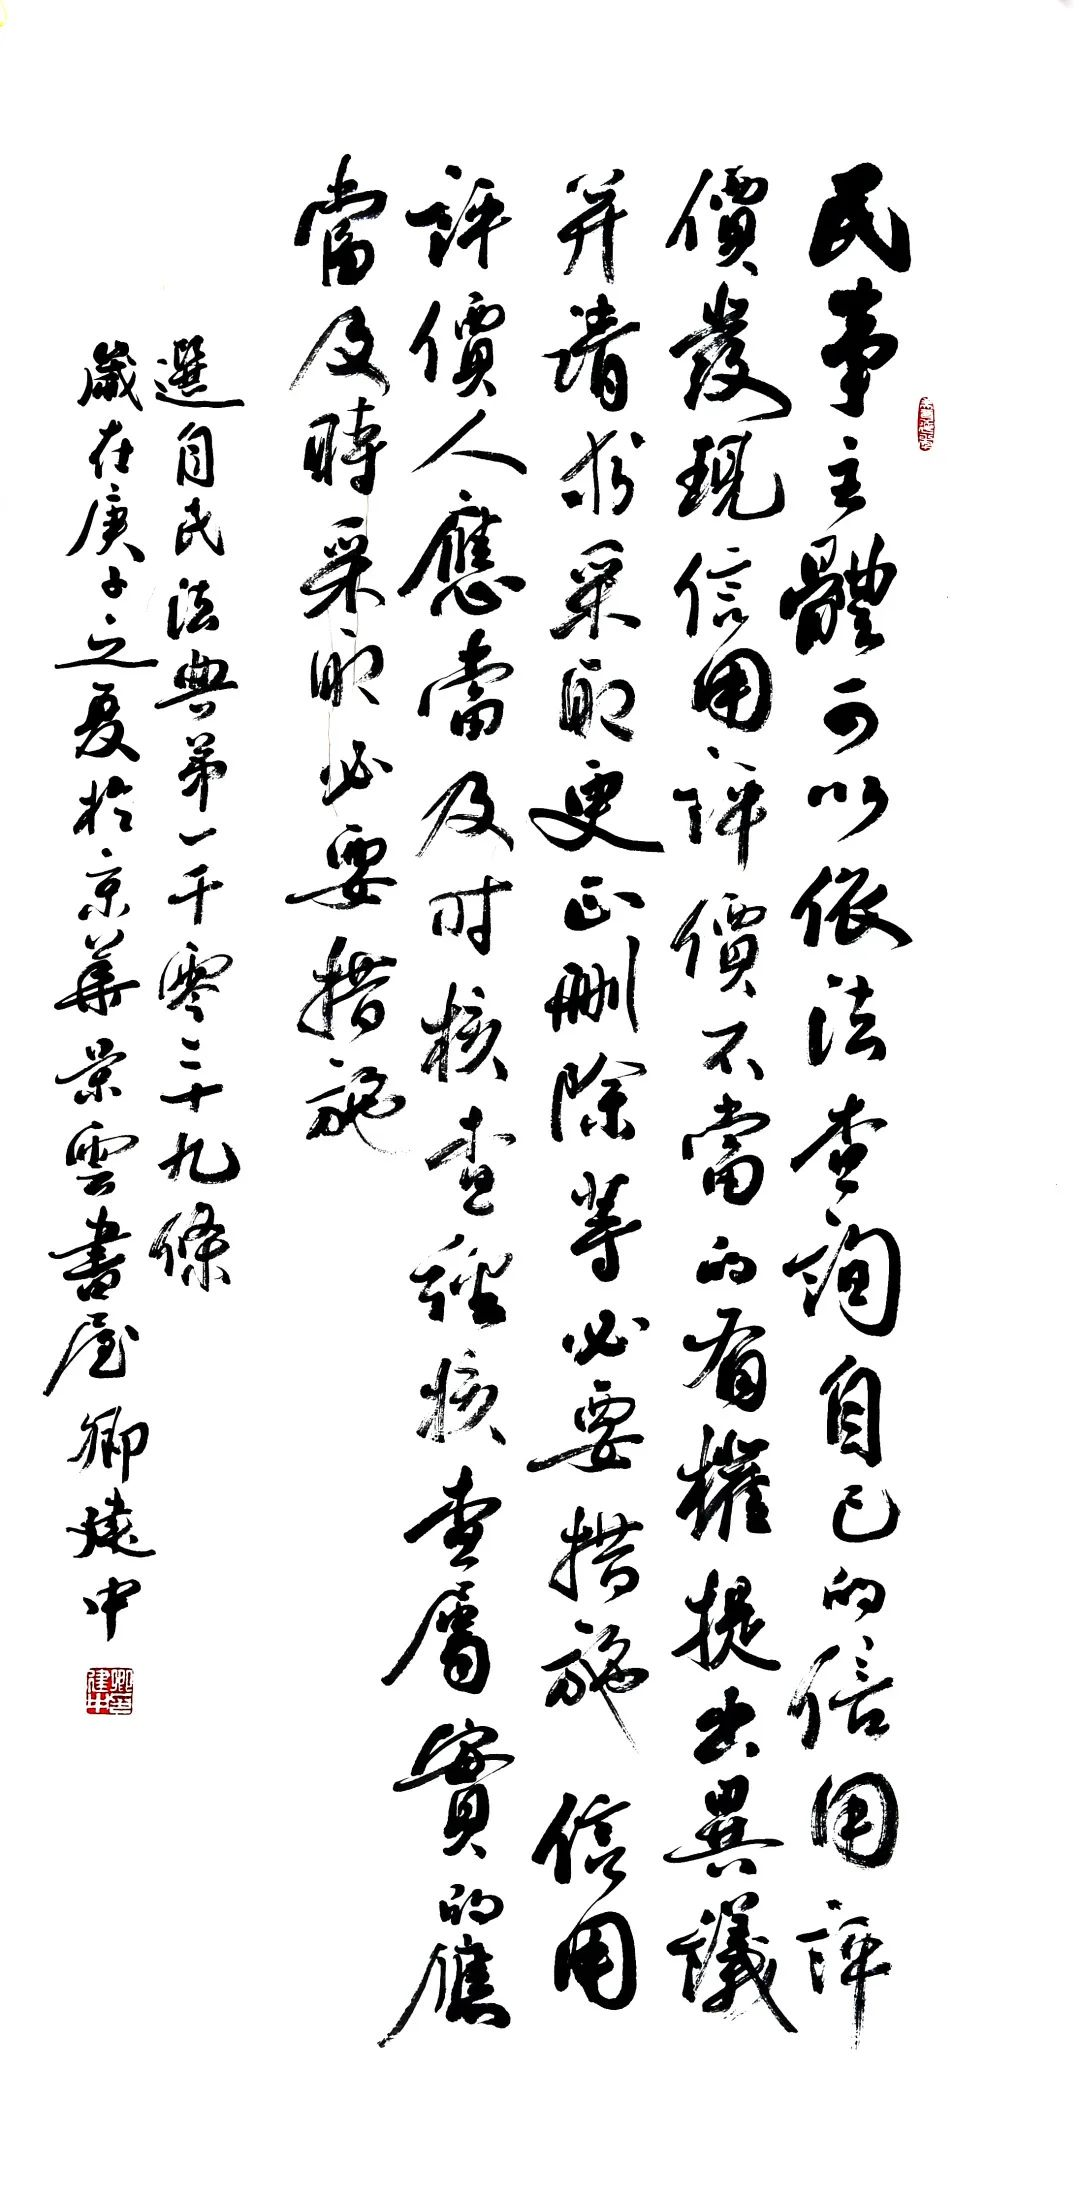 民事主體可以依法查詢自己的信用評
價發現信用評價不當的有權提出異議
并請求采取更正刪除等必要措施 信用
評價人應當及时核查經核查屬實的應
當及時采取必要措施
選自民法典第一千零二十九條
歲在庚子之夏於京華景雲書屋 卿建中
卿印建中